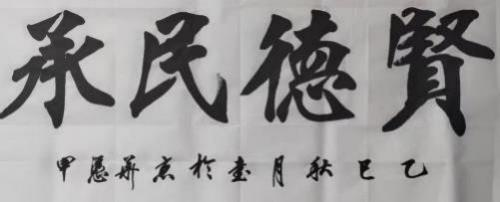 賢德民承
乙巳秋月書於京華愚甲